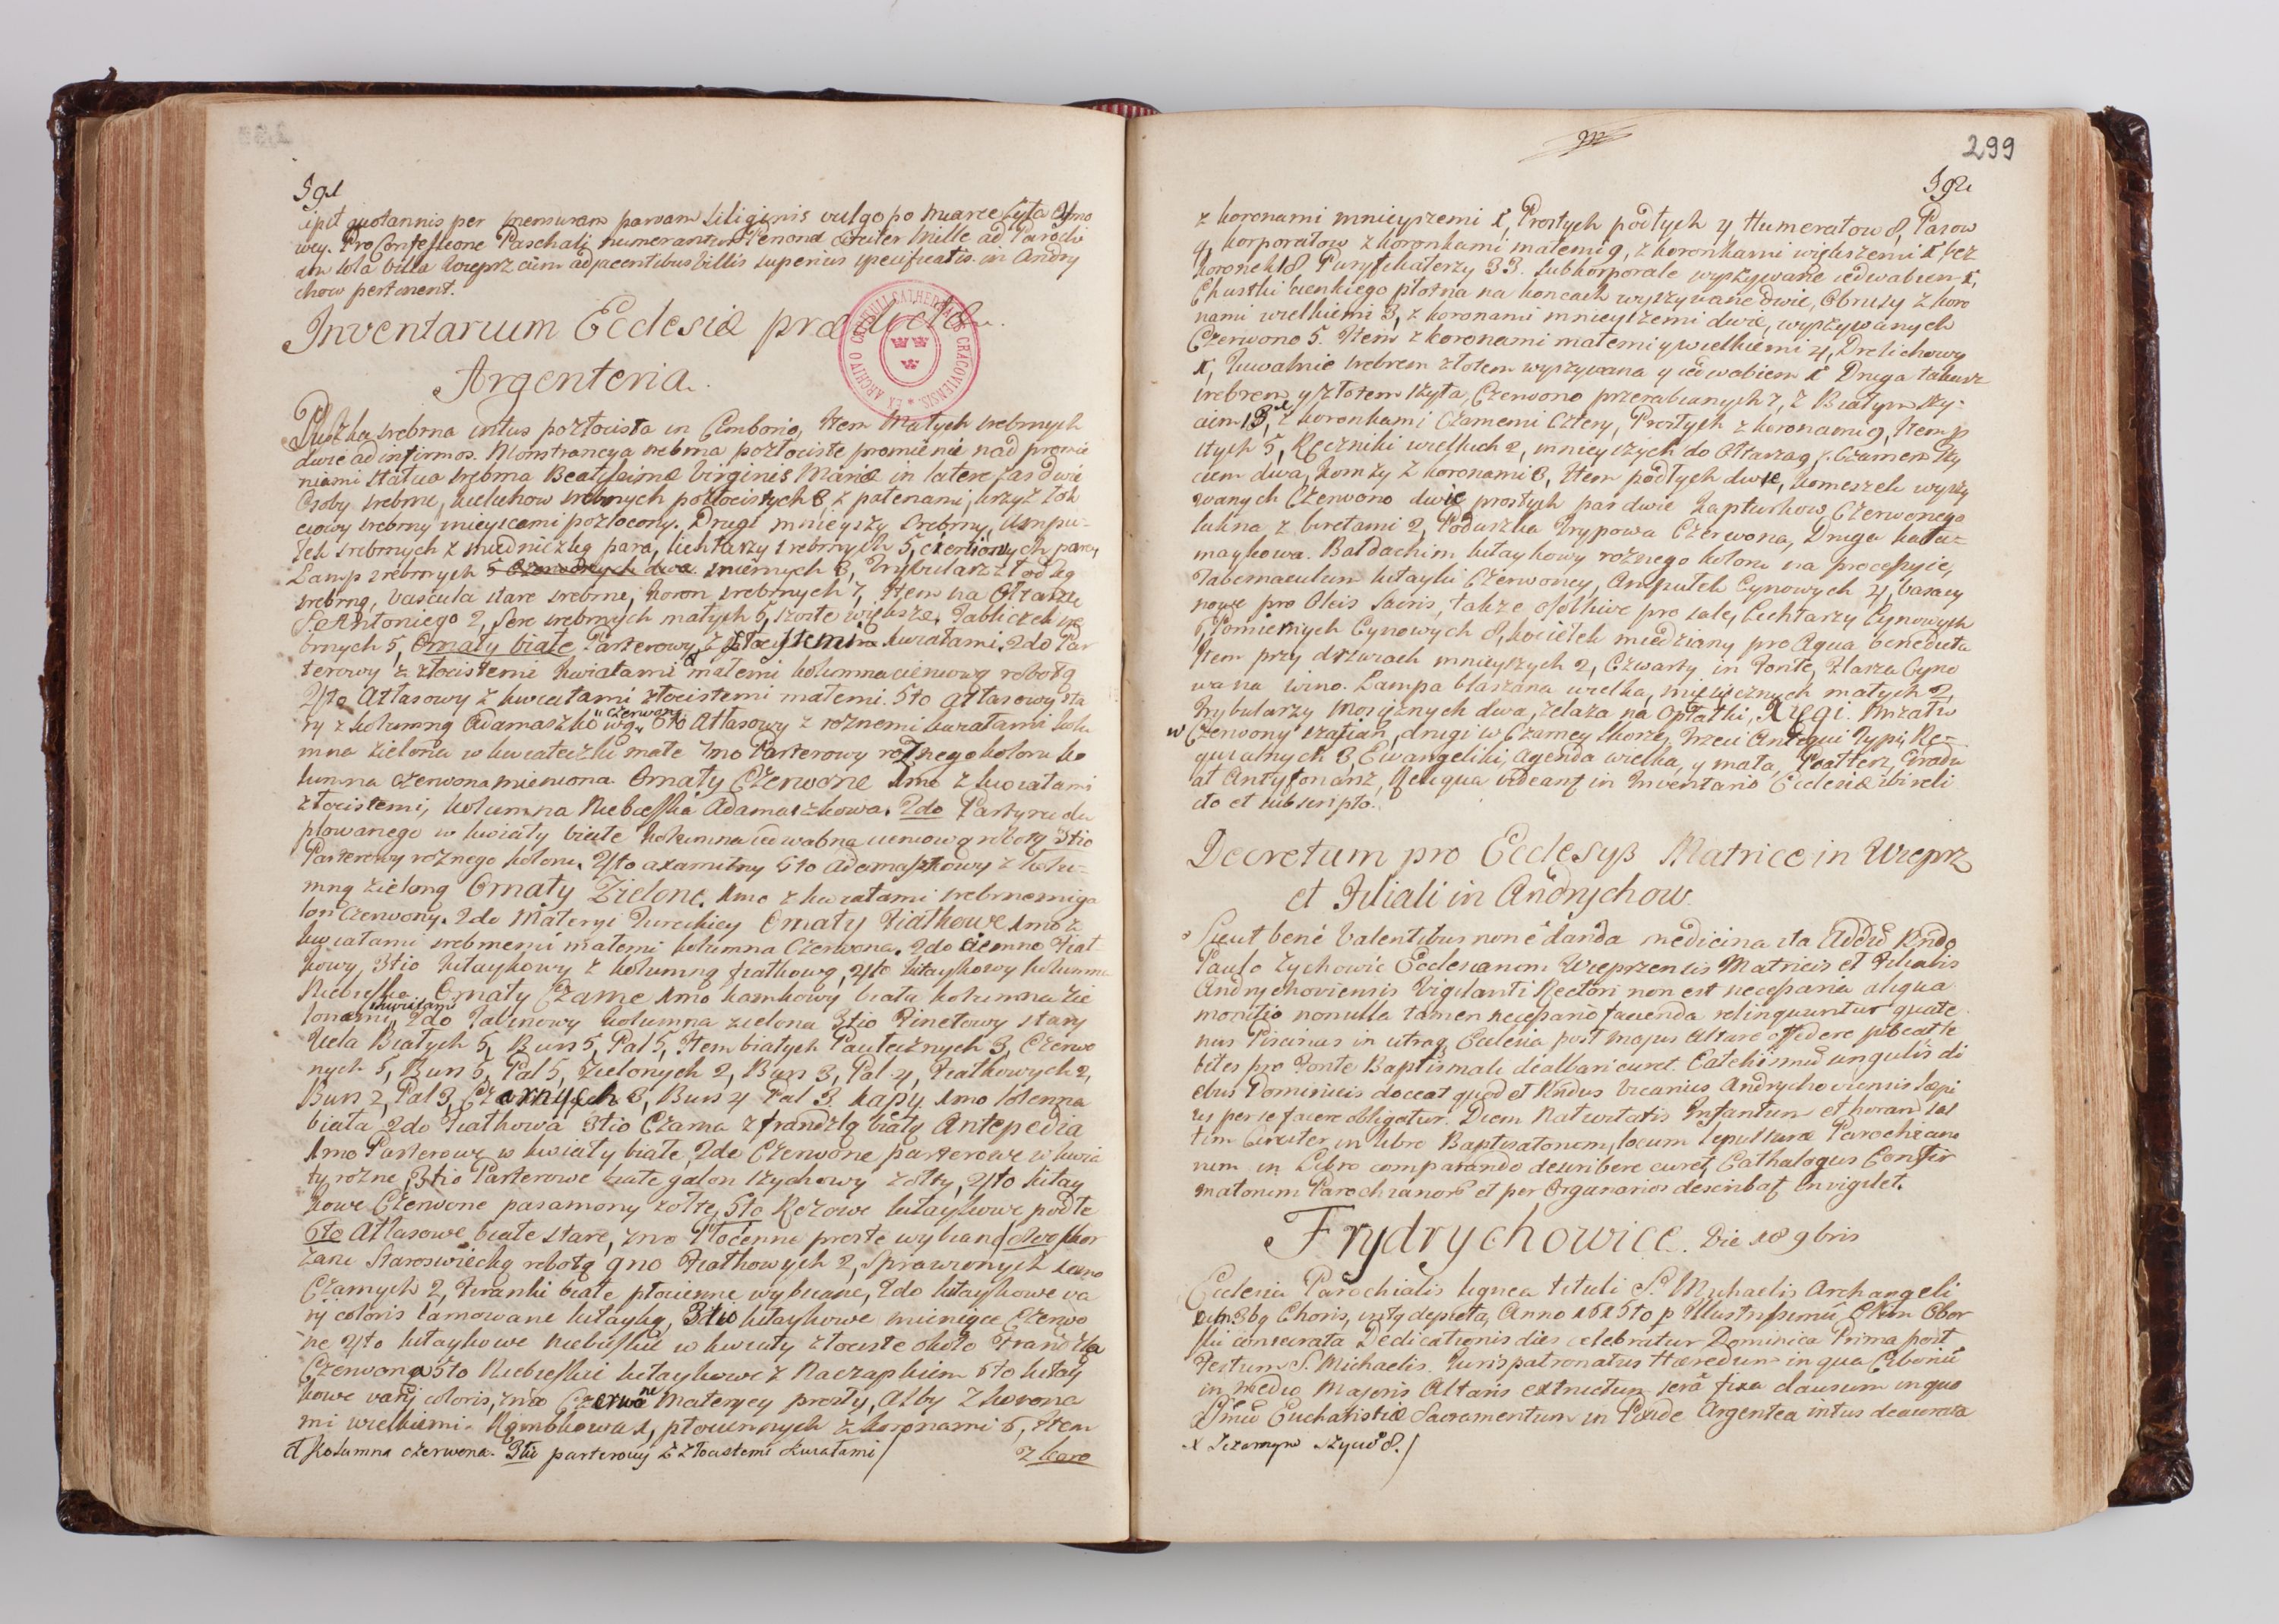 591
ipit quotannis per mensuram parvam Siliginis vulgo po miarce Zyta Dwo
wey. Pro Confessione Paschali numerantur Personæ circiter Mille ad Parochi
am tota villa Wieprz cum adjacentibus villis superius specificatis in Andry
chow pertinent.
Inventarium Ecclesiæ prædictæ.
EX ARCHIVO CAPITULI CATHEDRALIS CRACOVIENSIS
Argenteria.
Puszka srebrna intus pozłocista in Cimborio, Item małych srebrnych
dwie ad infirmos. Monstrancya srebrna pozłociste promienie nad promie
niami statua srebrna Beatissimæ Virginis Mariæ in latere zas dwie
Osoby srebrne, kielichow srebrnych pozłocistych 8, z patenami, krzyż łok
ciowy srebrny mieyscami pozłocony. Drugi mnieyszy Srebrny, Ampu-
łek srebrnych z miedniczką para, lichtarzy srebrnych 5, para,
Lamp srebrnych 5 Trybularz z łodką
srebrną, Vascula stare srebrne, koron srebrnych 7, Item na Ołtarzu
S. Antoniego 2, Serc srebrnych małych 5, szoste większe, Tabliczek sre
brnych 5, Ornaty białe Parterowy z złocistemi kwiatami. 2do Par
terowy z złocistemi kwiatami małemi kolumna cieniową robotą
4to Atłasowy z kwiatami złocistemi małemi. 5to atłasowy sta
ry z kolumną Adamaszkową czerwoną 6to Atłasowy z roznemi kwiatami kolu
mna zielona w kwiateczki małe 7mo Parterowy roznego koloru ko
lumna czerwona mieniona. Ornaty Czerwone 1mo z kwiatami
złocistemi, kolumna Niebieska Adamaszkowa. 2do Partyru du
plowanego w kwiaty białe kolumna iedwabna cieniową robotą 3tio
Parterowy roznego koloru. 4to axamitny 5to Adamaszkowy z kolu-
mną zieloną Ornaty Zielone. 1mo z kwiatami srebrnemi ga
lon Czerwony. 2do Materyi Tureckiey Ornaty Fiałkowe 1mo z
kwiatami srebrnemi małemi kolumna Czerwona. 2do ciemno Fiał
kowy, 3tio kitaykowy z kolumną fiałkową, 4to kitaykowy kolumna
Niebieska Ornaty Czarne 1mo kamkowy biała kolumna zie
lonemi kwiatami 2do Tabinowy kolumna zielona 3tio Pinetowy stary
Vela Białych 5, Burs 5, Pal 5, Item białych 3, Czerwo
nych 5, Burs 5, Pal 5, Zielonych 2, Burs 3, Pal 4, Fiałkowych 2,
Burs 2, Pal 3, Czarnych 3, Burs 4 Pal 3 Kapy 1mo Solenna
biała 2do Fiałkowa 3tio Czarna z frandzlą białą Antepedia
1mo Parterowe w kwiaty białe, 2do Czerwone parterowe w kwia
ty rozne, 3tio Parterowe białe galon szychowy zołty, 4to kitay
kowe Czerwone pasamony zołte, 5to Rozowe kitaykowe podłe
6to Atłasowe białe stare, 7mo Płocienne proste wybiane 8vo skor
zane Staroswiecką robotą 9no Fiałkowych 2, Sprawionych
Czarnych 2, Firanki białe płocienne wybiiane, 2do kitaykowe va
rij coloris lamowane kitayką, 3tio kitaykowe mieniące Czerwo
ne 4to kitaykowe niebieskie w kwiaty złociste około Frandzla
Czerwona 5to Niebieskie kitaykowe z Naczapkiem 6to kitay
kowe varij coloris, 7mo Czerwone Materyey prosty, Alby z korona
mi wielkiemi. 1, płociennych z koronami 6, Item
d Kolumna czerwona. 3tio parterowy z złocistemi kwiatami /
z koro
299
592
z koronami mnieyszemi 1, Prostych podłych 4 Humerałow 8, Pasow
4, korporałow z koronkami małemi 9, z koronkami większemi 1 bez
koronek 18 Puryfikaterzy 33. Subkorporale wyszywane iedwabiem 1,
Chustki cienkiego płotna na koncach wyszywane dwie, Obrusy z koro
nami wielkiemi 3, z koronami mnieyszemi dwie, wyszywanych
Czerwono 5. Item z koronami małemi y wielkiemi 4, Drelichowy
1, Tuwalnie srebrem złotem wyszywana y iedwabiem 1 Druga takusz
srebrem y złotem szyta, Czerwono przerabianych 7, z Białym szy-
ciem 13, z koronkami Czarnemi Cztery, Prostych z koronami 9, Item p
stych 5, Ręczniki wielkich 2, mnieyszych do Ołtarza 9 z Czarnem szy
ciem dwa, Komzy z koronami 8, Item podłych dwie, Komeszek wyszy
wanych Czerwono dwie prostych par dwie Kapturkow Czerwonego
sukna z biretami 2, Poduszka Trypowa Czerwona, Druga kała-
maykowa. Baldachim kitaykowy roznego koloru na processyie,
Tabernaculum kitayki Czerwoney, Ampułek Cynowych 4, Vasa cy
nowe pro Oleis Sacris, także Solskie pro sale, Lichtarzy Cynowych
6, Pomiernych Cynowych 8, kociełek miedziany pro Aqua benedicta
Item przy drzwiach mnieyszych 2, Czwarty in Fonte, Flasza Cyno
wa na wino. Lampa blaszana wielka, mosięznych małych 2,
Trybularzy Mosięznych dwa, żelaza na Opłatki, Xięgi. Mszały
w Czerwony szafian, drugi w Czarney skorze, trzeci Antiqui Typi, Re-
quialnych 3, Ewangeliki, Agenda wielka, y mała, Psałterz, Gradu
ał Antyfonarz, Reliqua videant in Inventario Ecclesiæ ibi reli
cto et subscripto.
Decretum pro Ecclesyß Matrice in Wieprz
et Filiali in Andrychow.
Sicut bene Valentibus non ē danda medicina ita Addū Rndo
Paulo Zychowic Ecclesiarum Wieprzensis Matricis et Filialis
Andrychoviensis Vigilanti Rectori non est necessaria aliqua
monitio nonulla tamen necessario facienda relinquuntur quate
nus Piscinas in utraq Ecclesia post majus Altare effodere p
bites pro Fonte Baptismali dealbari curet. Catechismū singulis di
ebus Dominicis doceat quod et Rndus Vicarius Andrychoviensis sæpi
us per se facere obligatur. Diem Nativitatis Infantium et horam sal
tim circiter in libro Baptisatorum, locum sepulturæ Parochiano
rum in Libro comparando describere curet, Cathalogus Confir
matorum Parochianorū et per Organarios describat invigilet.
Frydrychowice. Die 18 9bris
Ecclesia Parochialis lignea tituli S. Michaelis Archangeli
cum 3bq Choris, intq depicta, Anno 1615to p Illustrissimū Okim Obor
ski consecrata Dedicationis dies celebratur Dominica Prima post
Festum S. Michaelis. Iuris patronatus Hæredum in qua Ciboriū
in medio Majoris Altaris extructum serâ fixa clausum in quo
SSmū Eucharistiæ Sacramentum in Pixide Argentea intus deaurata
x Iczarnym szyciē 8. /